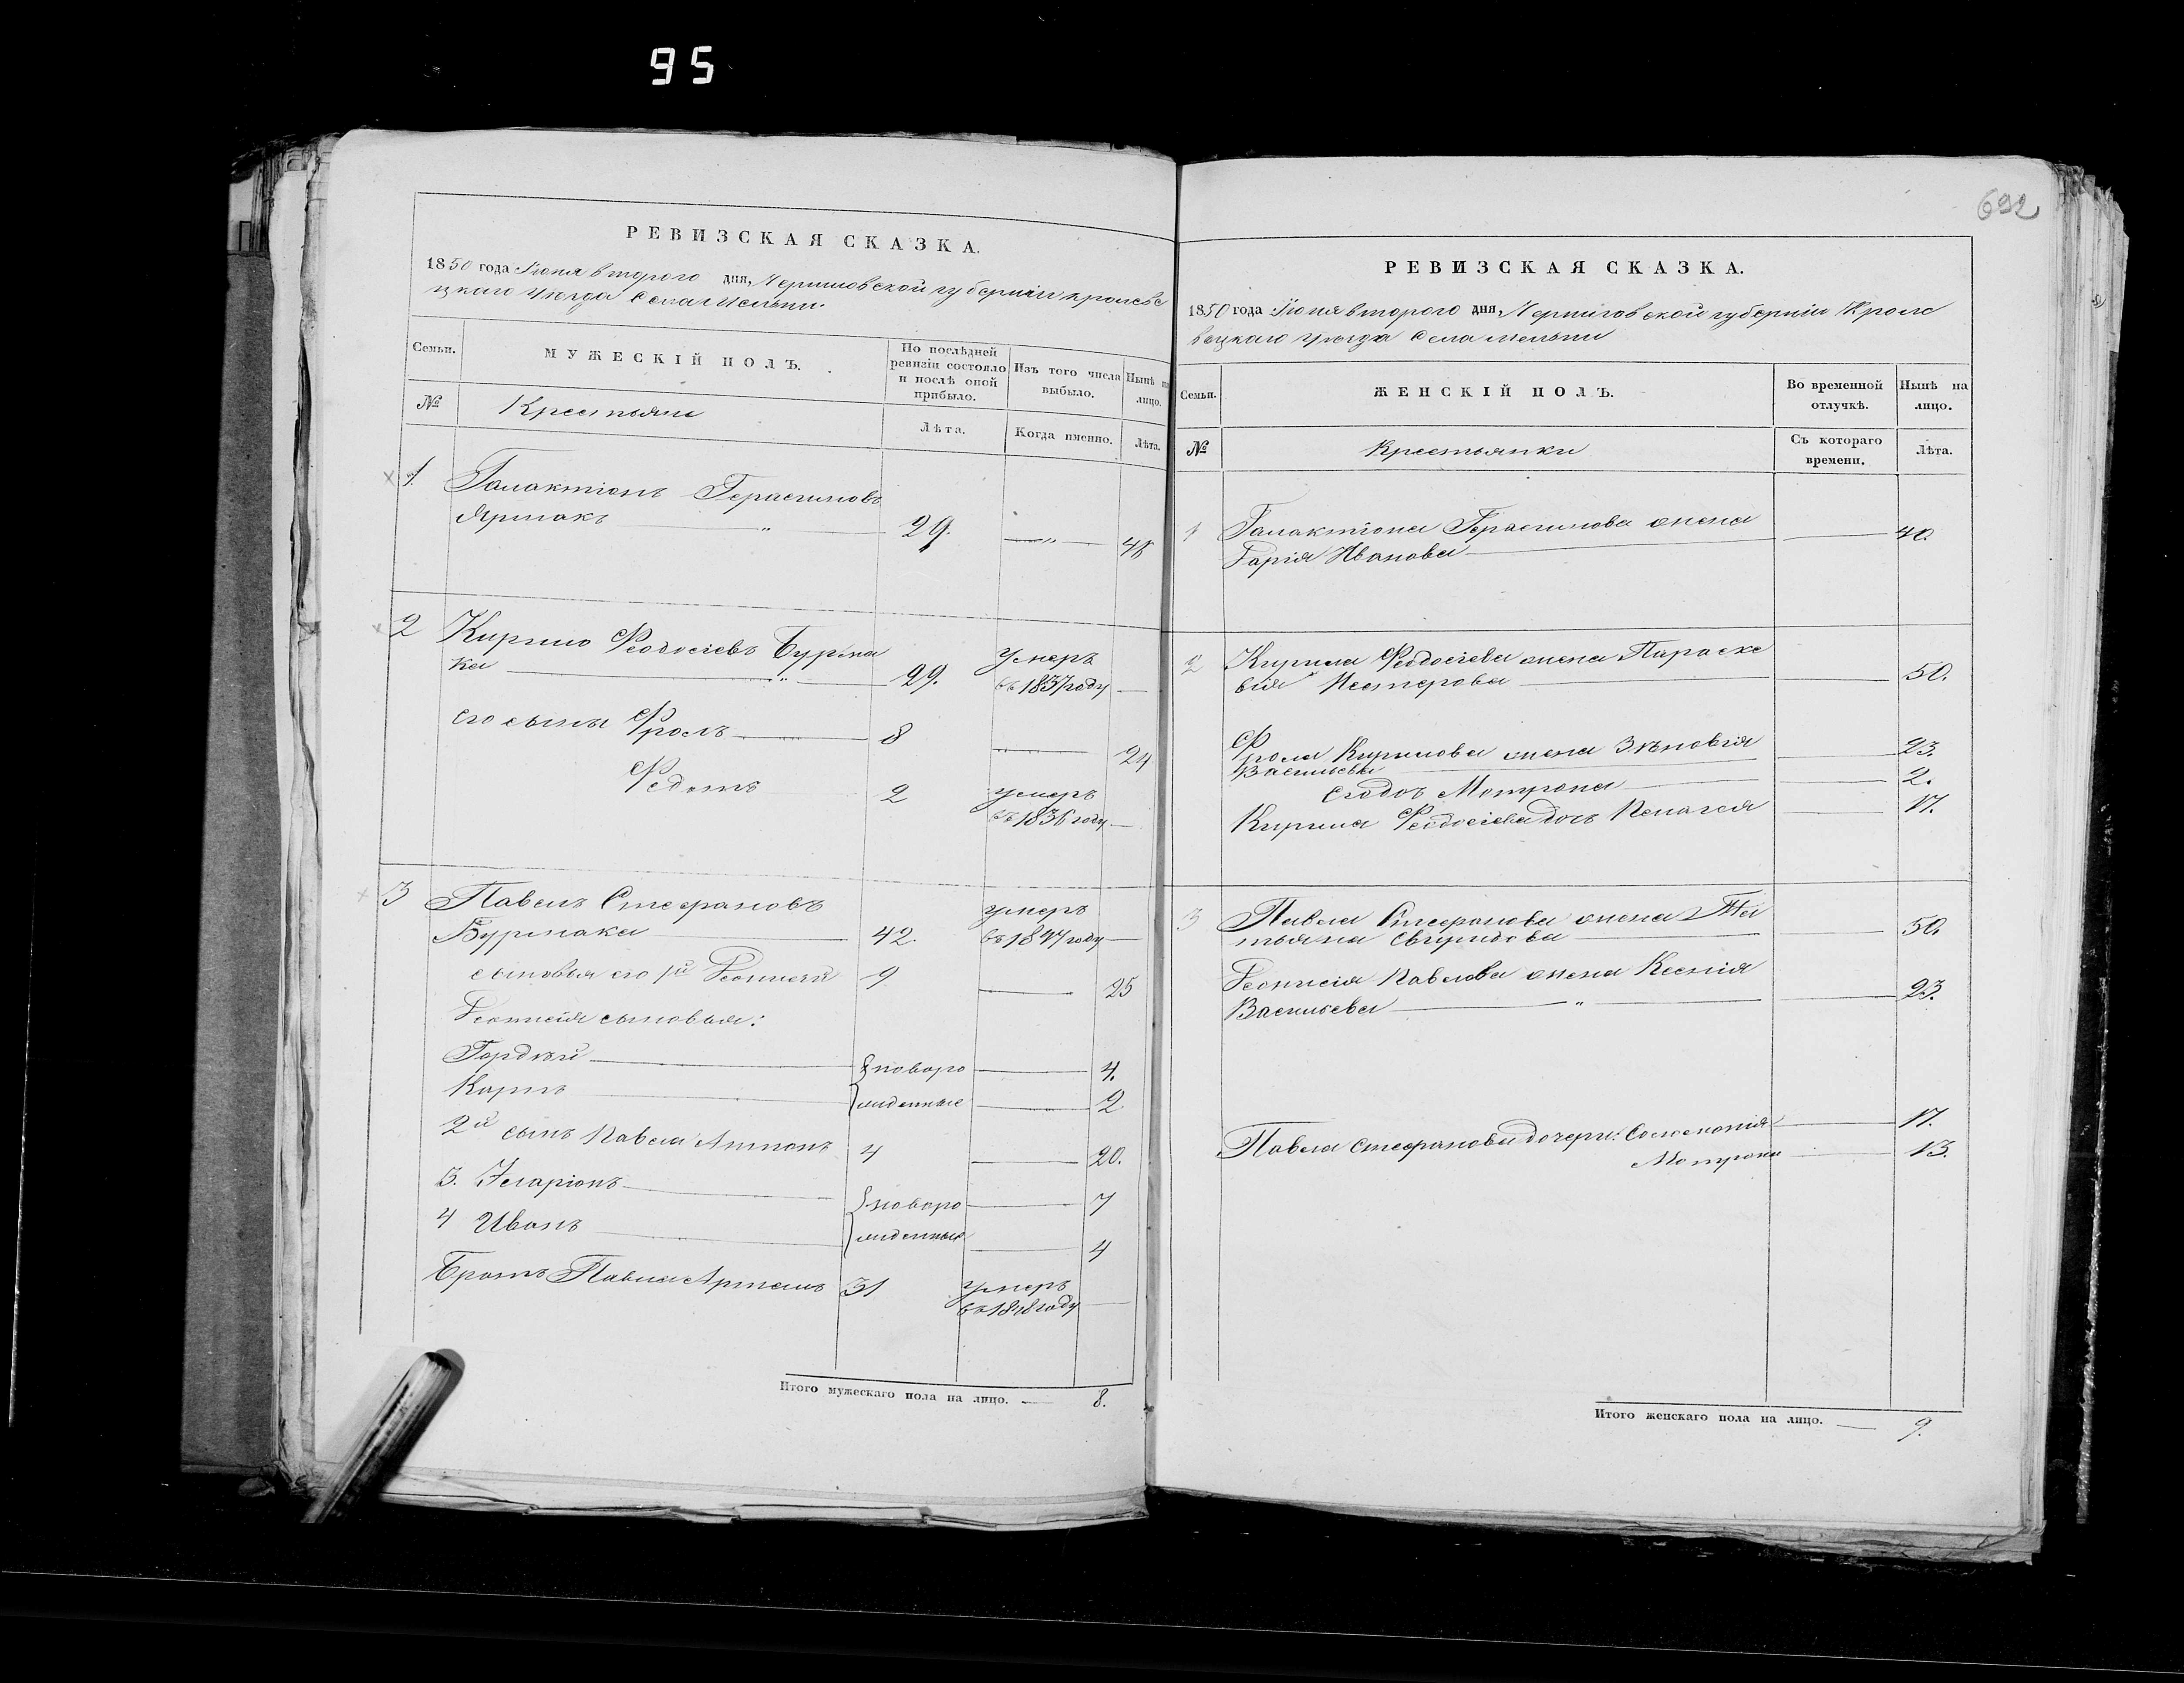 95
РЕВИЗСКАЯ СКАЗКА.
1850 года Іюня второго дня, Черниговской губерніи Кролеве
цкаго уѣзда села Мельни.
Семьи.
МУЖЕСКІЙ ПОЛЪ.
По послѣдней ревизіи состояло и послѣ оной прибыло.
Изъ того числа выбыло.
Нынѣ на лицо.
№
Крестьяне
Лѣта.
Когда именно.
Лѣта.
1. Галактіонъ Герасимовъ
Ярмакъ 29. 48
2 Кирило Феодосіевъ Бурма
ка 29. умеръ въ 1837 году
его сынъ Фролъ 8 24
Федотъ 2 умеръ въ 1836 году
3 Павелъ Стефановъ
Бурмака 42. умеръ въ 1847 году
сыновья его 1й Деонисій 9 25
Деонисія сыновья:
Гордѣй новоро 4.
Карпъ жденные 2
2й сынъ Павла Антонъ 4 20.
3. Іларіонъ новоро 7
4 Иванъ жденные 4
Братъ Павла Артемъ 31 умеръ въ 1848 году
Итого мужескаго пола на лицо. 8.
692
РЕВИЗСКАЯ СКАЗКА.
1850 года Іюня второго дня, Черниговской губерніи Кроле
вецкаго уѣзда села Мельни
Семьи.
ЖЕНСКІЙ ПОЛЪ.
Во временной отлучкѣ.
Нынѣ на лицо.
№
Крестьянки
Съ котораго времени.
Лѣта.
1 Галактіона Герасимова жена
Дарія Иванова 40.
2 Кирила Феодосіева жена Параске
вія Нестерова 50.
Фрола Кирилова жена Зѣновія
Васильева 23.
его дочь Мотрона 2.
Кирила Феодосіева дочь Пелагея 17.
3 Павла Стефанова жена Та
тьяна Свиридова 50.
Деонисія Павлова жена Ксенія
Васильева 23.
Павла Стефанова дочери: Соломонія 17.
Мотрона 13.
Итого женскаго пола на лицо. 9.